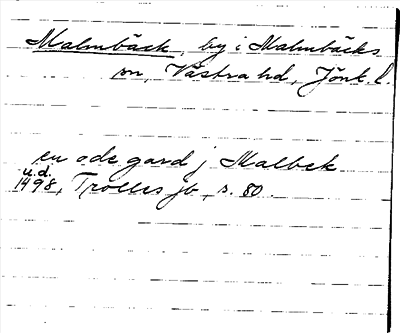 Malmbäck, by i Malmbäcks
sn, Västra hd, Jönk. l.
en øde gard j Malbek
u.d.
1498, Trolles jb, s. 80.